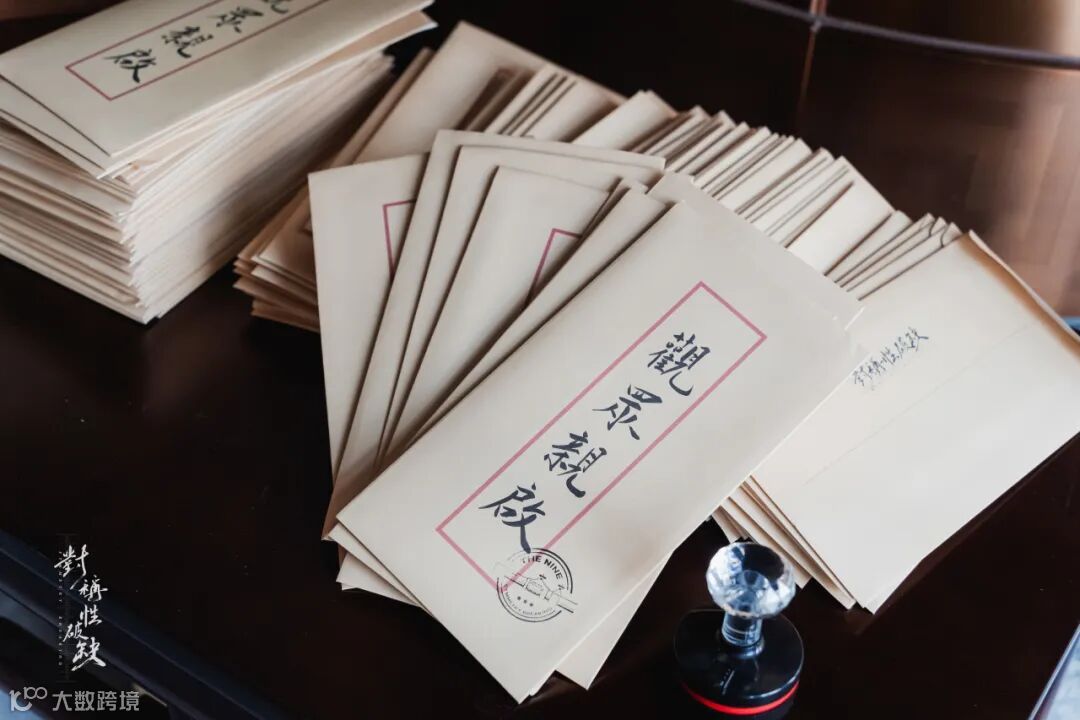 觀眾親啟
觀眾親啟
THE NINE
對稱性破缺
對稱性破缺
大数跨境